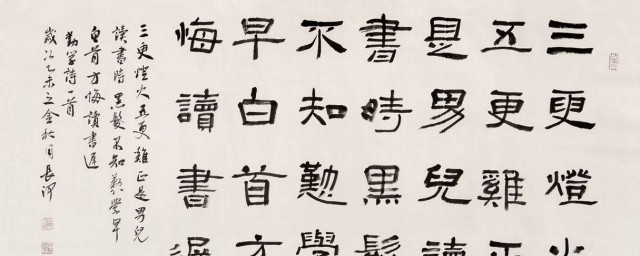 三更燈火
五更雞正
是男兒讀
書時黑髮
不知勤學
早白首方
悔讀書遲
三更燈火五更雞正是男兒
讀書時黑髮不知勤學早
白首方悔讀書遲
勸學詩一首
歲次乙未之金秋月長河